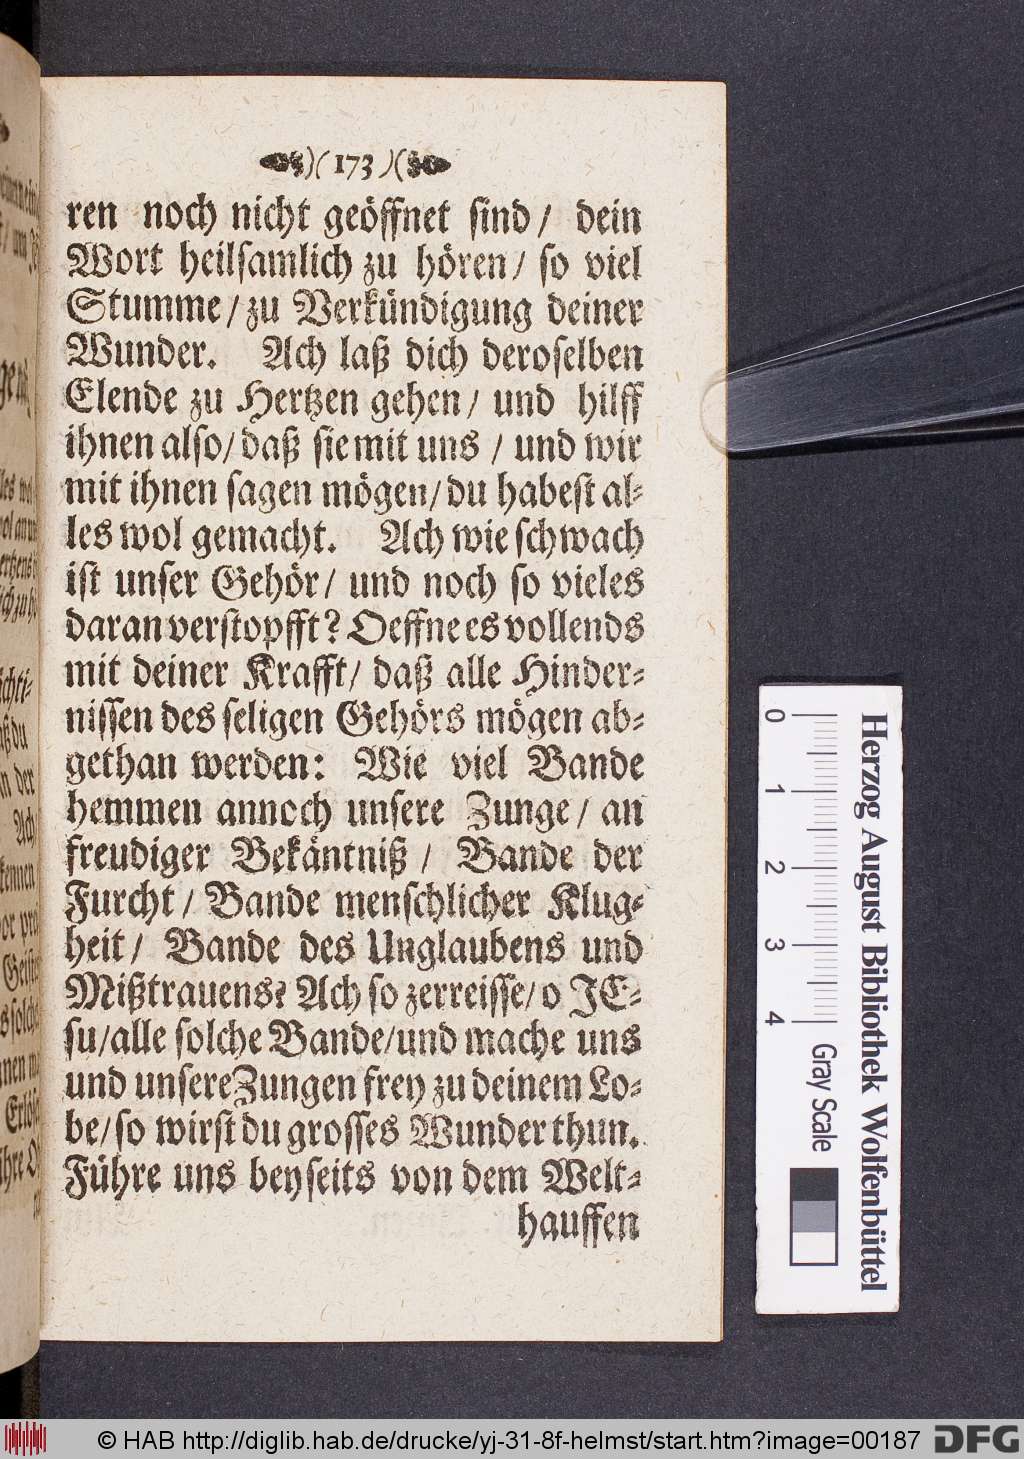 )( 173 )(
ren noch nicht geöffnet sind/ dein
Wort heilsamlich zu hören/ so viel
Stumme/zu Verkündigung deiner
Wunder. Ach laß dich deroselben
Elende zu Hertzen gehen/ und hilff
ihnen also/daß sie mit uns / und wir
mit ihnen sagen mögen/du habest al-
les wol gemacht. Ach wie schwach
ist unser Gehör/ und noch so vieles
daran verstopfft? Oeffne es vollends
mit deiner Krafft/ daß alle Hinder-
nissen des seligen Gehörs mögen ab-
gethan werden: Wie viel Bande
hemmen annoch unsere Zunge/ an
freudiger Bekäntniß/ Bande der
Furcht/ Bande menschlicher Klug-
heit/ Bande des Unglaubens und
Mißtrauens? Ach so zerreisse/o JE-
su/alle solche Bande/und mache uns
und unsere Zungen frey zu deinem Lo-
be/so wirst du grosses Wunder thun.
Führe uns beyseits von dem Welt-
hauffen
Herzog August Bibliothek Wolfenbüttel
0 1 2 3 4 Gray Scale
© HAB http://diglib.hab.de/drucke/yj-31-8f-helmst/start.htm?image=00187
DFG